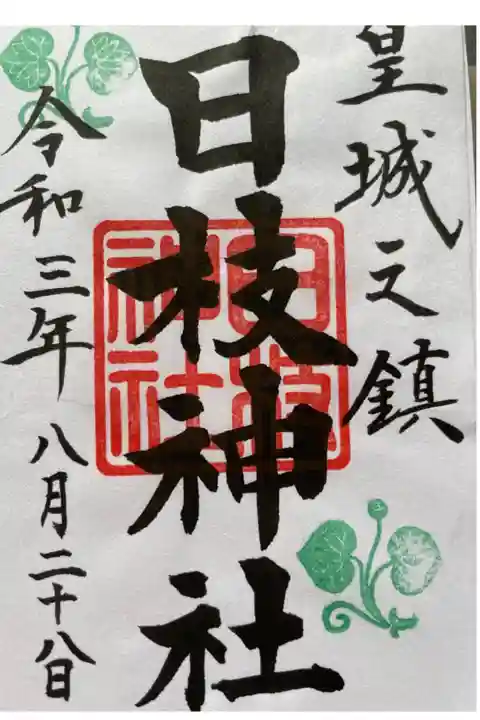 皇城之鎮
日枝神社
令和三年八月二十八日
日枝
神社